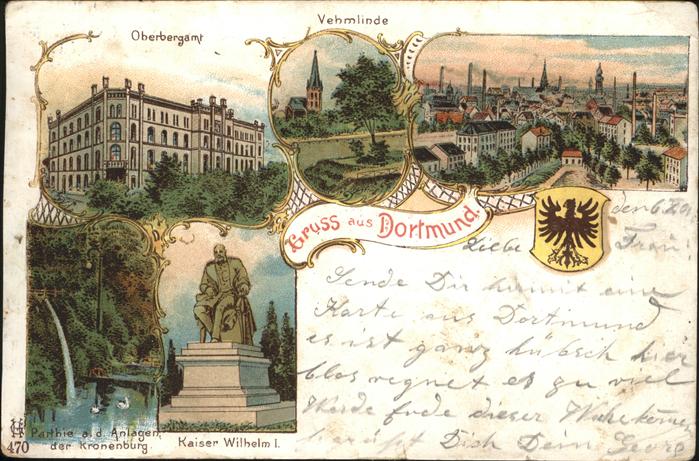 Oberbergamt
Vehmlinde
Gruss aus Dortmund.
Liebe Frau!
Sende Dir hiermit eine
Karte aus Dortmund
es ist ganz hübsch hier
blos regnet es zu viel
Werde Ende dieser Woche kommen
Dich Dein Georg
Parthie a.d. Anlagen
der Kronenburg.
Kaiser Wilhelm I.
470